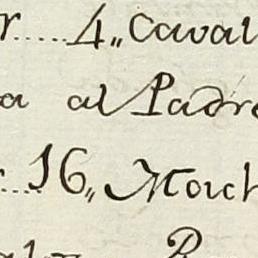 r.....4,, Caval
a al Padre
...16,, Moich